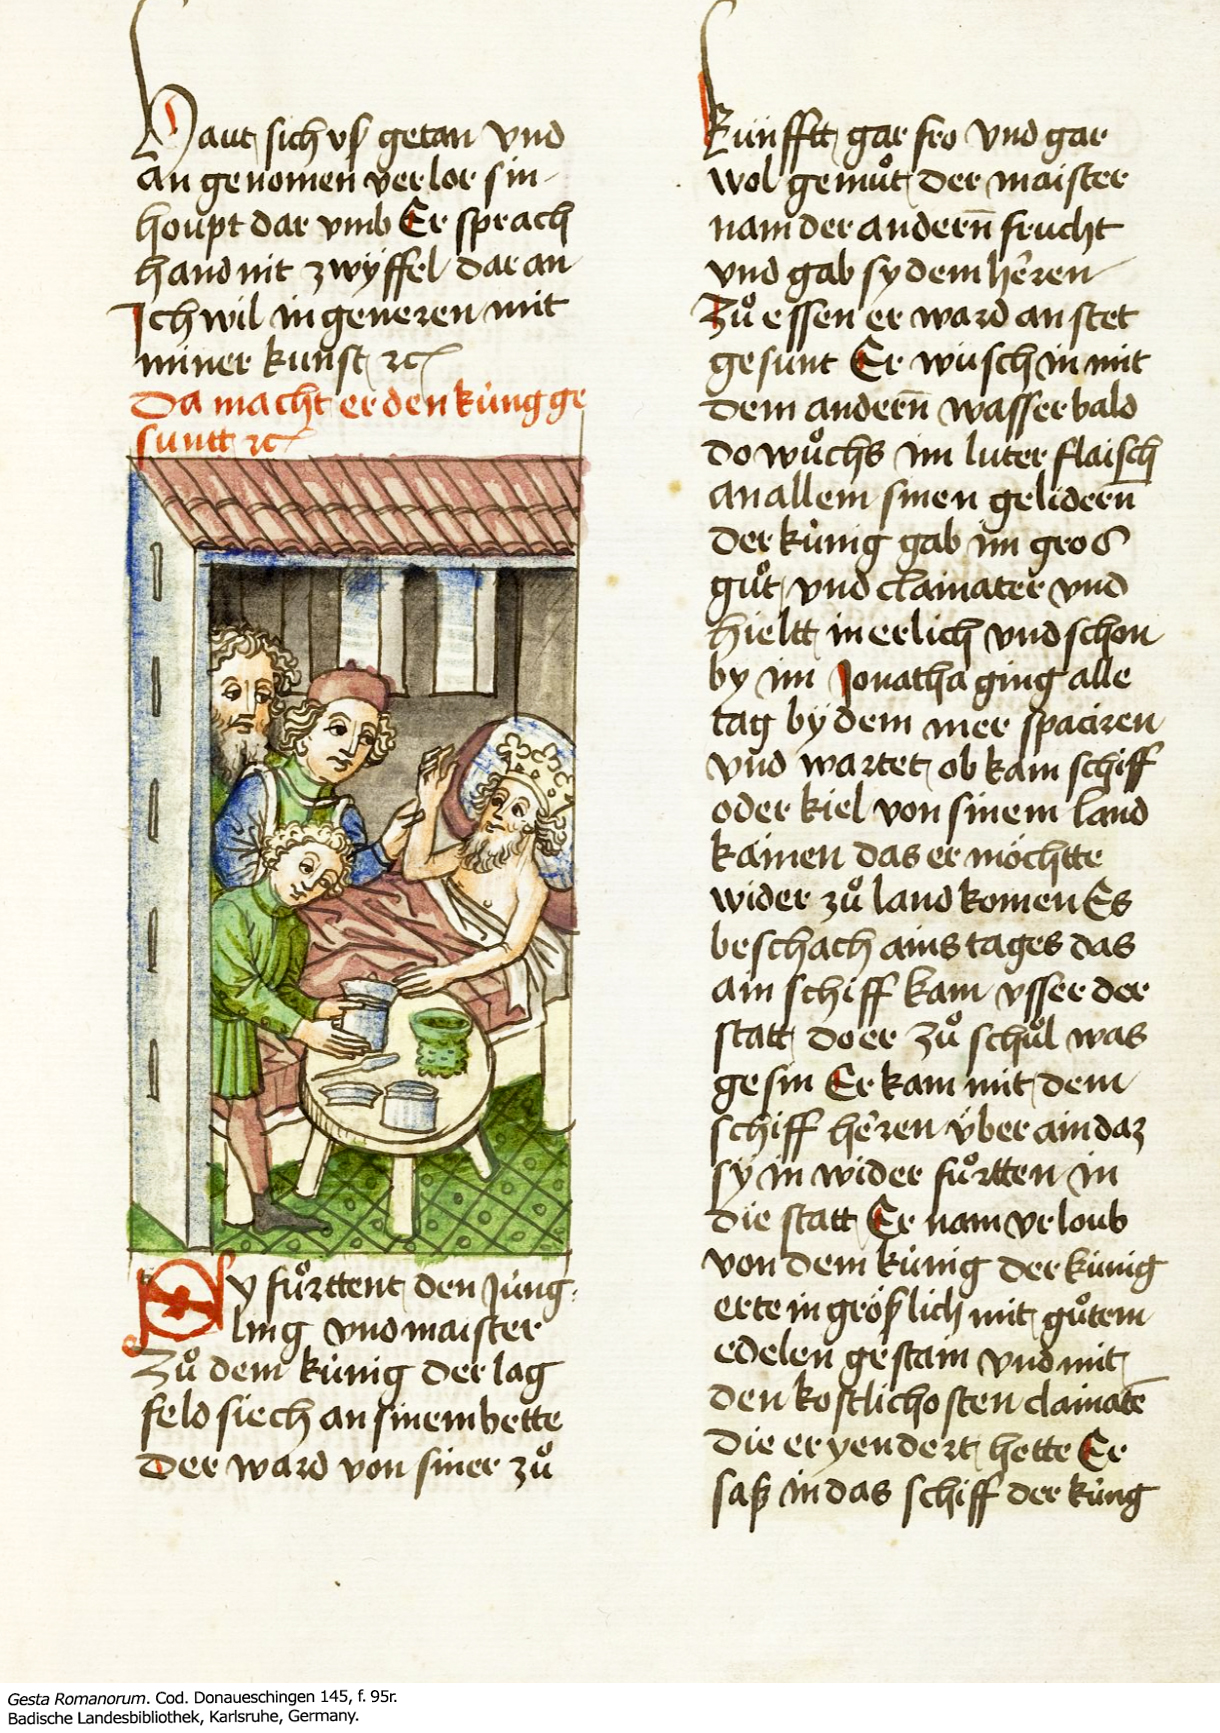 Haut sich vß getan vnd
an genomen verlor sin
houpt dar vmb Er sprach
hand nit zwÿffel dar an
Ich wil in generen mit
miner kunst ꝛc
Da macht er den kúng ge
suntt ꝛc
Sy fuͦrttent den Júng
ling vnd maister
Zuͦ dem kúnig der lag
feld siech an sinem bette
Der ward von siner zuͦ
kúnfftt gar fro vnd gar
wol gemuͦt der maister
nam der andern̄ frucht
vnd gab sy dem heren
Zuͦ essen er ward an stet
gesunt Er wusch in mit
dem andern̄ wasser bald
do wuͦchs im luter flaisch
an allem sinen gelidern̄
der kúnig gab im gros
guͦt vnd clainater vnd
hieltt in erlich vnd schon
by im Jonatha ging alle
tag bÿ dem mer spaciren
vnd wartet ob kam schiff
oder kiel von sinem land
kämen das er möchtte
wider zuͦ land komen Es
beschach ains tages das
ain schiff kam vsser der
statt do er zuͦ schuͦl was
gesin Er kam mit dem
schiff heren v́ber ain daz
sÿ in wider fuͦrtten in
die statt Er nam vrloub
von dem kúnig der kúnig
erte in größlich mit guͦtem
edelen gestain vnd mit
den kostlichosten clainatē
die er yendert hette Er
saß in das schiff der kúng
Gesta Romanorum. Cod. Donaueschingen 145, f. 95r.
Badische Landesbibliothek, Karlsruhe, Germany.